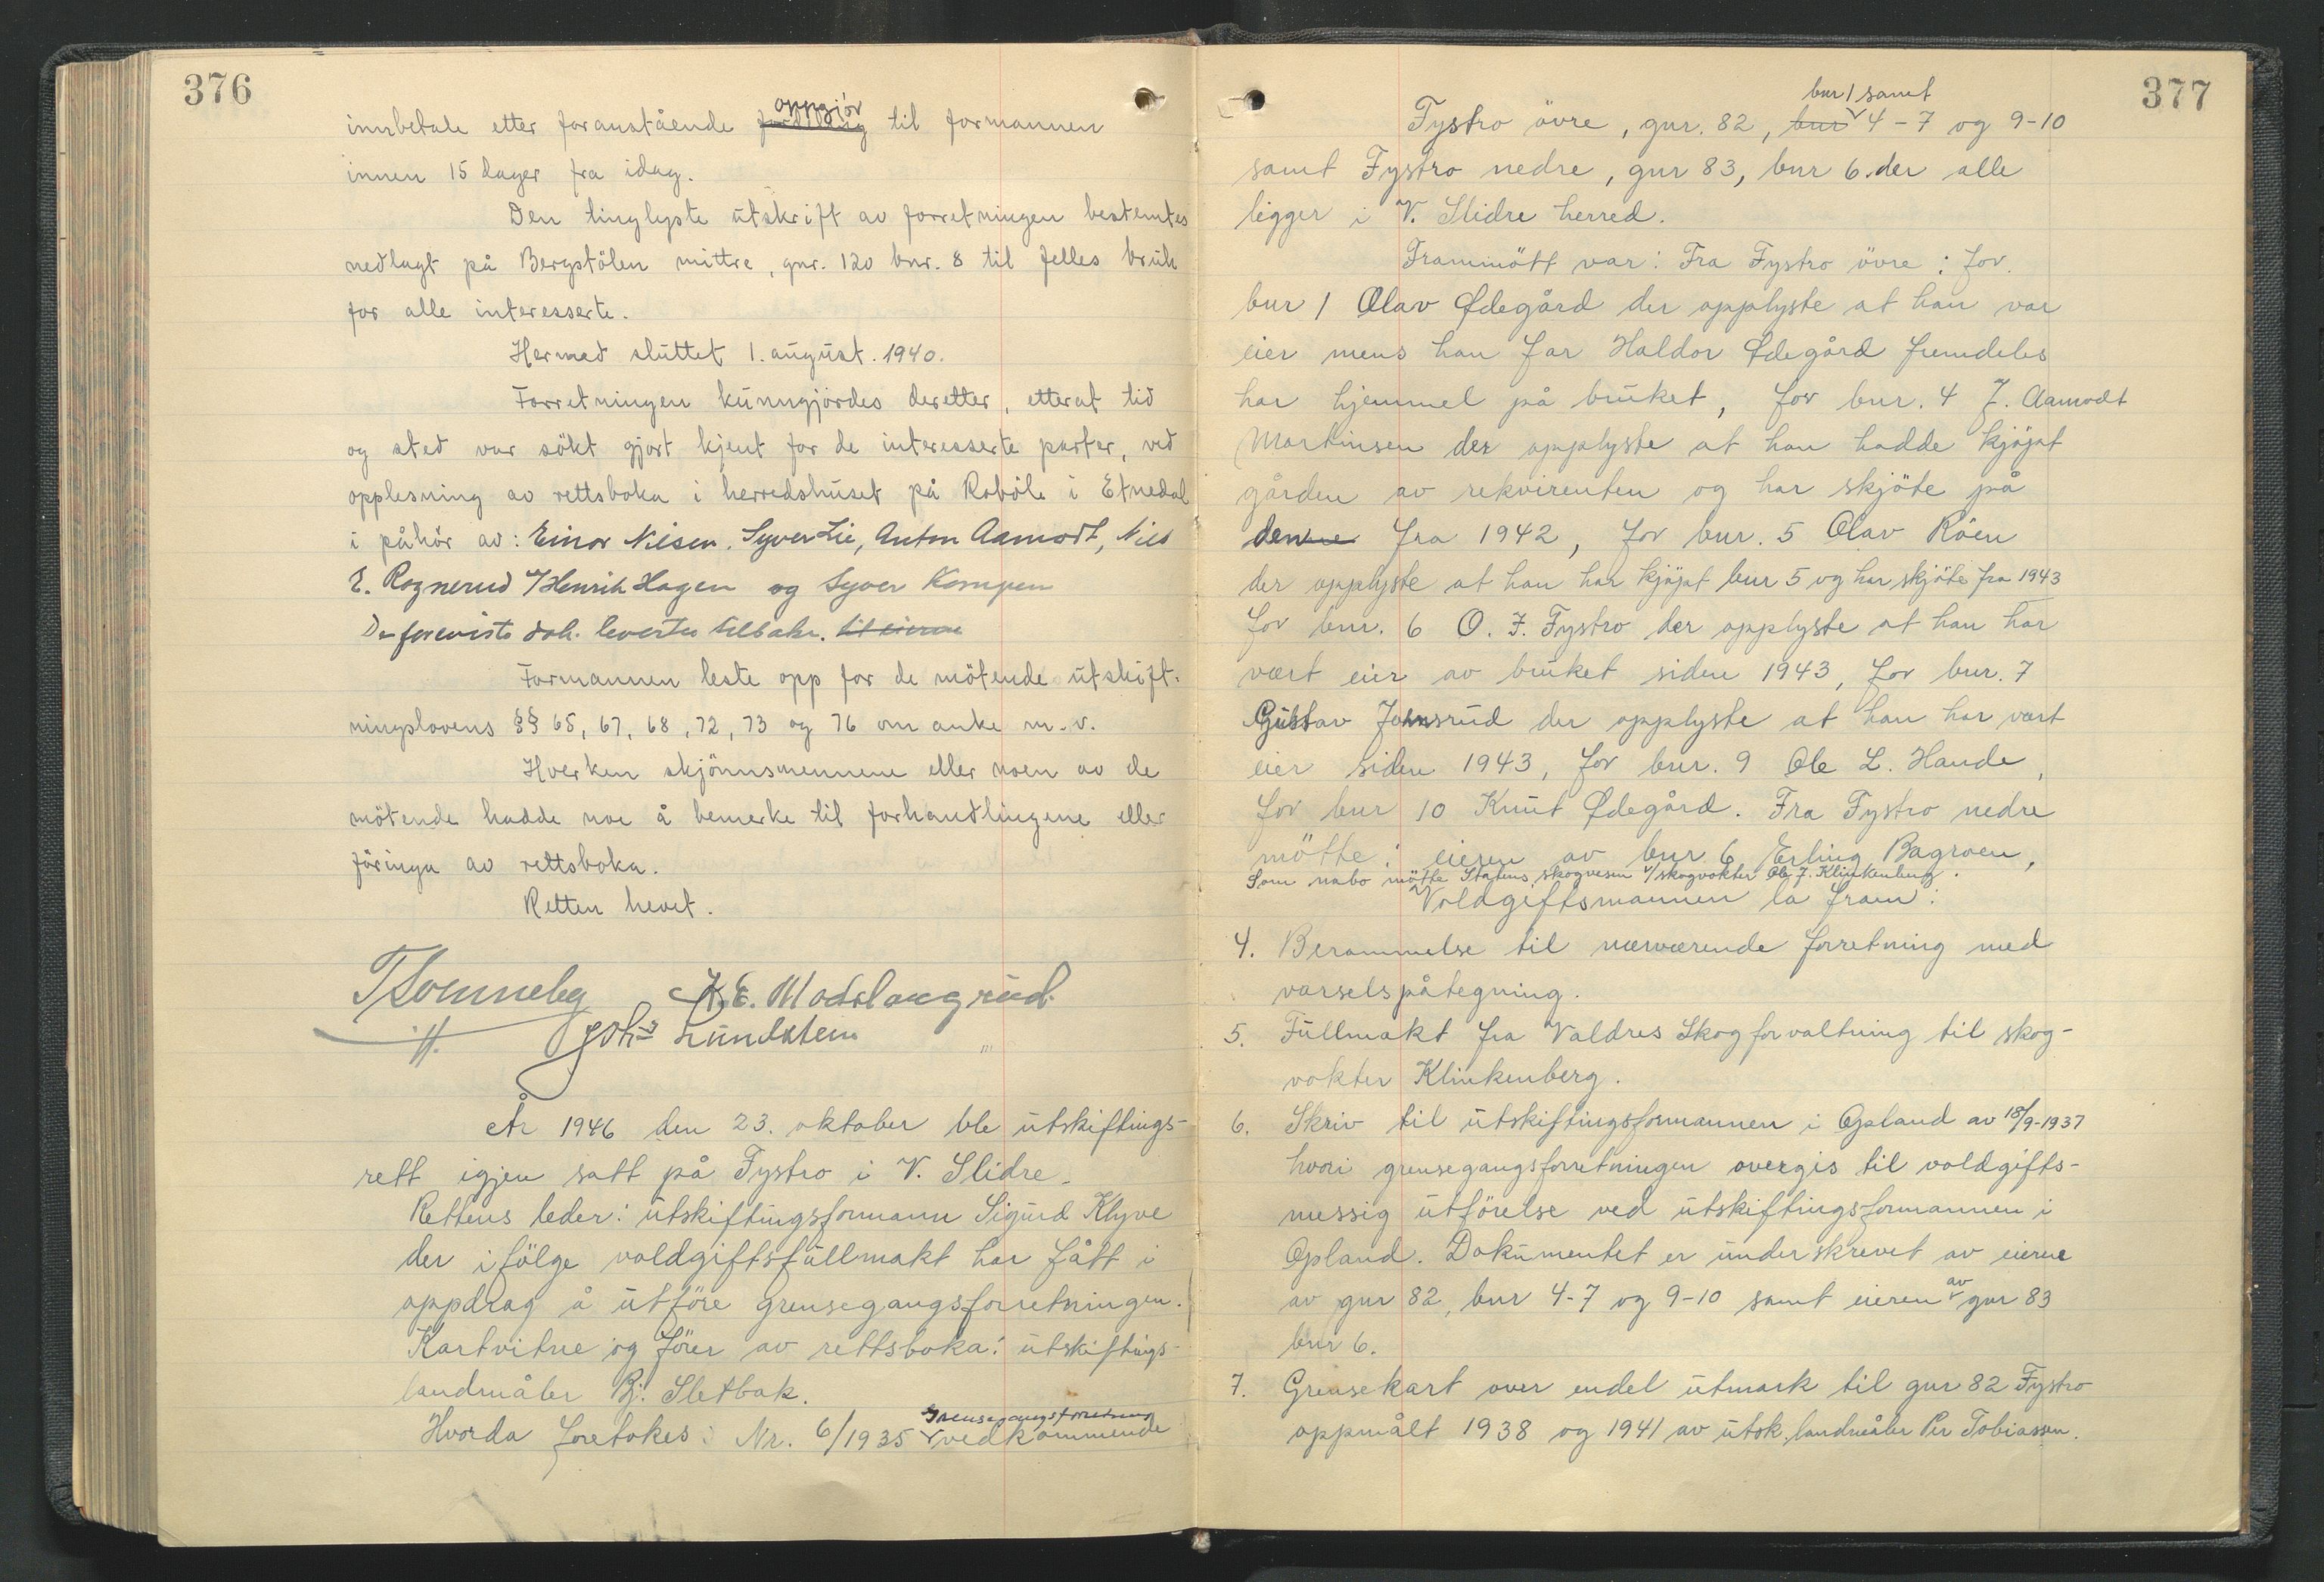 376
innbetale etter foranstående oppgjör til formannen
innen 15 dager fra idag.
Den tinglyste utskrift av forretningen bestemtes
nedlagt på Bergstölen mittre, gnr. 120 bnr. 8 til felles bruk
for alle interesserte.
Hermed sluttet 1. august. 1940.
Forretningen kunngjördes deretter, etterat tid
og sted var sökt gjort kjent for de interesserte parter, ved
opplesning av rettsboka i herredshuset på Roböle i Etnedal
i påhör av: Einar Nilsen, Syver Lie, Anton Aamodt, Nils
E. Rognerud v/Henrik Hagen og Syver Kompen
De foreviste dok. levertes tilbake. til eierne
Formannen leste opp for de mötende utskift-
ningslovens §§ 65, 67, 68, 72, 73 og 76 om anke m.v.
Hverken skjönnsmennene eller noen av de
mötende hadde noe å bemerke til forhandlingene eller
föringa av rettsboka.
Retten hevet.
K. E. Modslangrud.
Johs Lundstein
År 1946 den 23. oktober ble utskiftings-
rett igjen satt på Fystro i V. Slidre.
Rettens leder: utskiftingsformann Sigurd Klyve
der ifölge voldgiftsfullmakt har fått i
oppdrag å utföre grensegangsforretningen.
Kartvitne og förer av rettsboka: utskiftings-
landmåler Bj. Sletbak.
grensegangsforretning
Hvorda foretokes: Nr. 6/1935 vedkommende
377
bnr 1 samt
Fystro övre, gnr. 82, bnr 4-7 og 9-10
samt Fystro nedre, gnr 83, bnr 6 der alle
ligger i V. Slidre herred.
Frammött var: Fra Fystro övre: for
bnr 1 Olav Ødegård der opplyste at han var
eier mens han far Haldor Ødegård fremdeles
har hjemmel på bruket, for bnr. 4 J. Aamodt
Martinsen der opplyste at han hadde kjöpt
gården av rekvirenten og har skjöte på
denne fra 1942, for bnr. 5 Olav Röen
der opplyste at han har kjöpt bnr 5 og har skjöte fra 1943
for bnr. 6 O. J. Fystro der opplyste at han har
vært eier av bruket siden 1943, for bnr. 7
Gustav Johnsrud der opplyste at han har vært
eier siden 1943, for bnr. 9 Ole L. Hande,
for bnr 10 Knut Ødegård. Fra Fystro nedre
mötte: eieren av bnr 6 Erling Bagroen,
Som nabo mötte Statens skogvesen v/skogvokter Ole J. Klinkenberg.
Voldgiftsmannen la fram:
4. Berammelse til nærværende forretning med
varselspåtegning.
5. Fullmakt fra Valdres Skogforvaltning til skog-
vokter Klinkenberg.
6. Skriv til utskiftingsformannen i Opland av 18/9-1937
hvori grensegangsforretningen overgis til voldgifts-
messig utförelse ved utskiftingsformannen i
Opland. Dokumentet er underskrevet av eierne
av gnr 82, bnr 4-7 og 9-10 samt eieren av gnr 83
bnr 6.
7. Grensekart over endel utmark til gnr 82 Fystro
oppmålt 1938 og 1941 av utsk. landmåler Per Tobiassen.